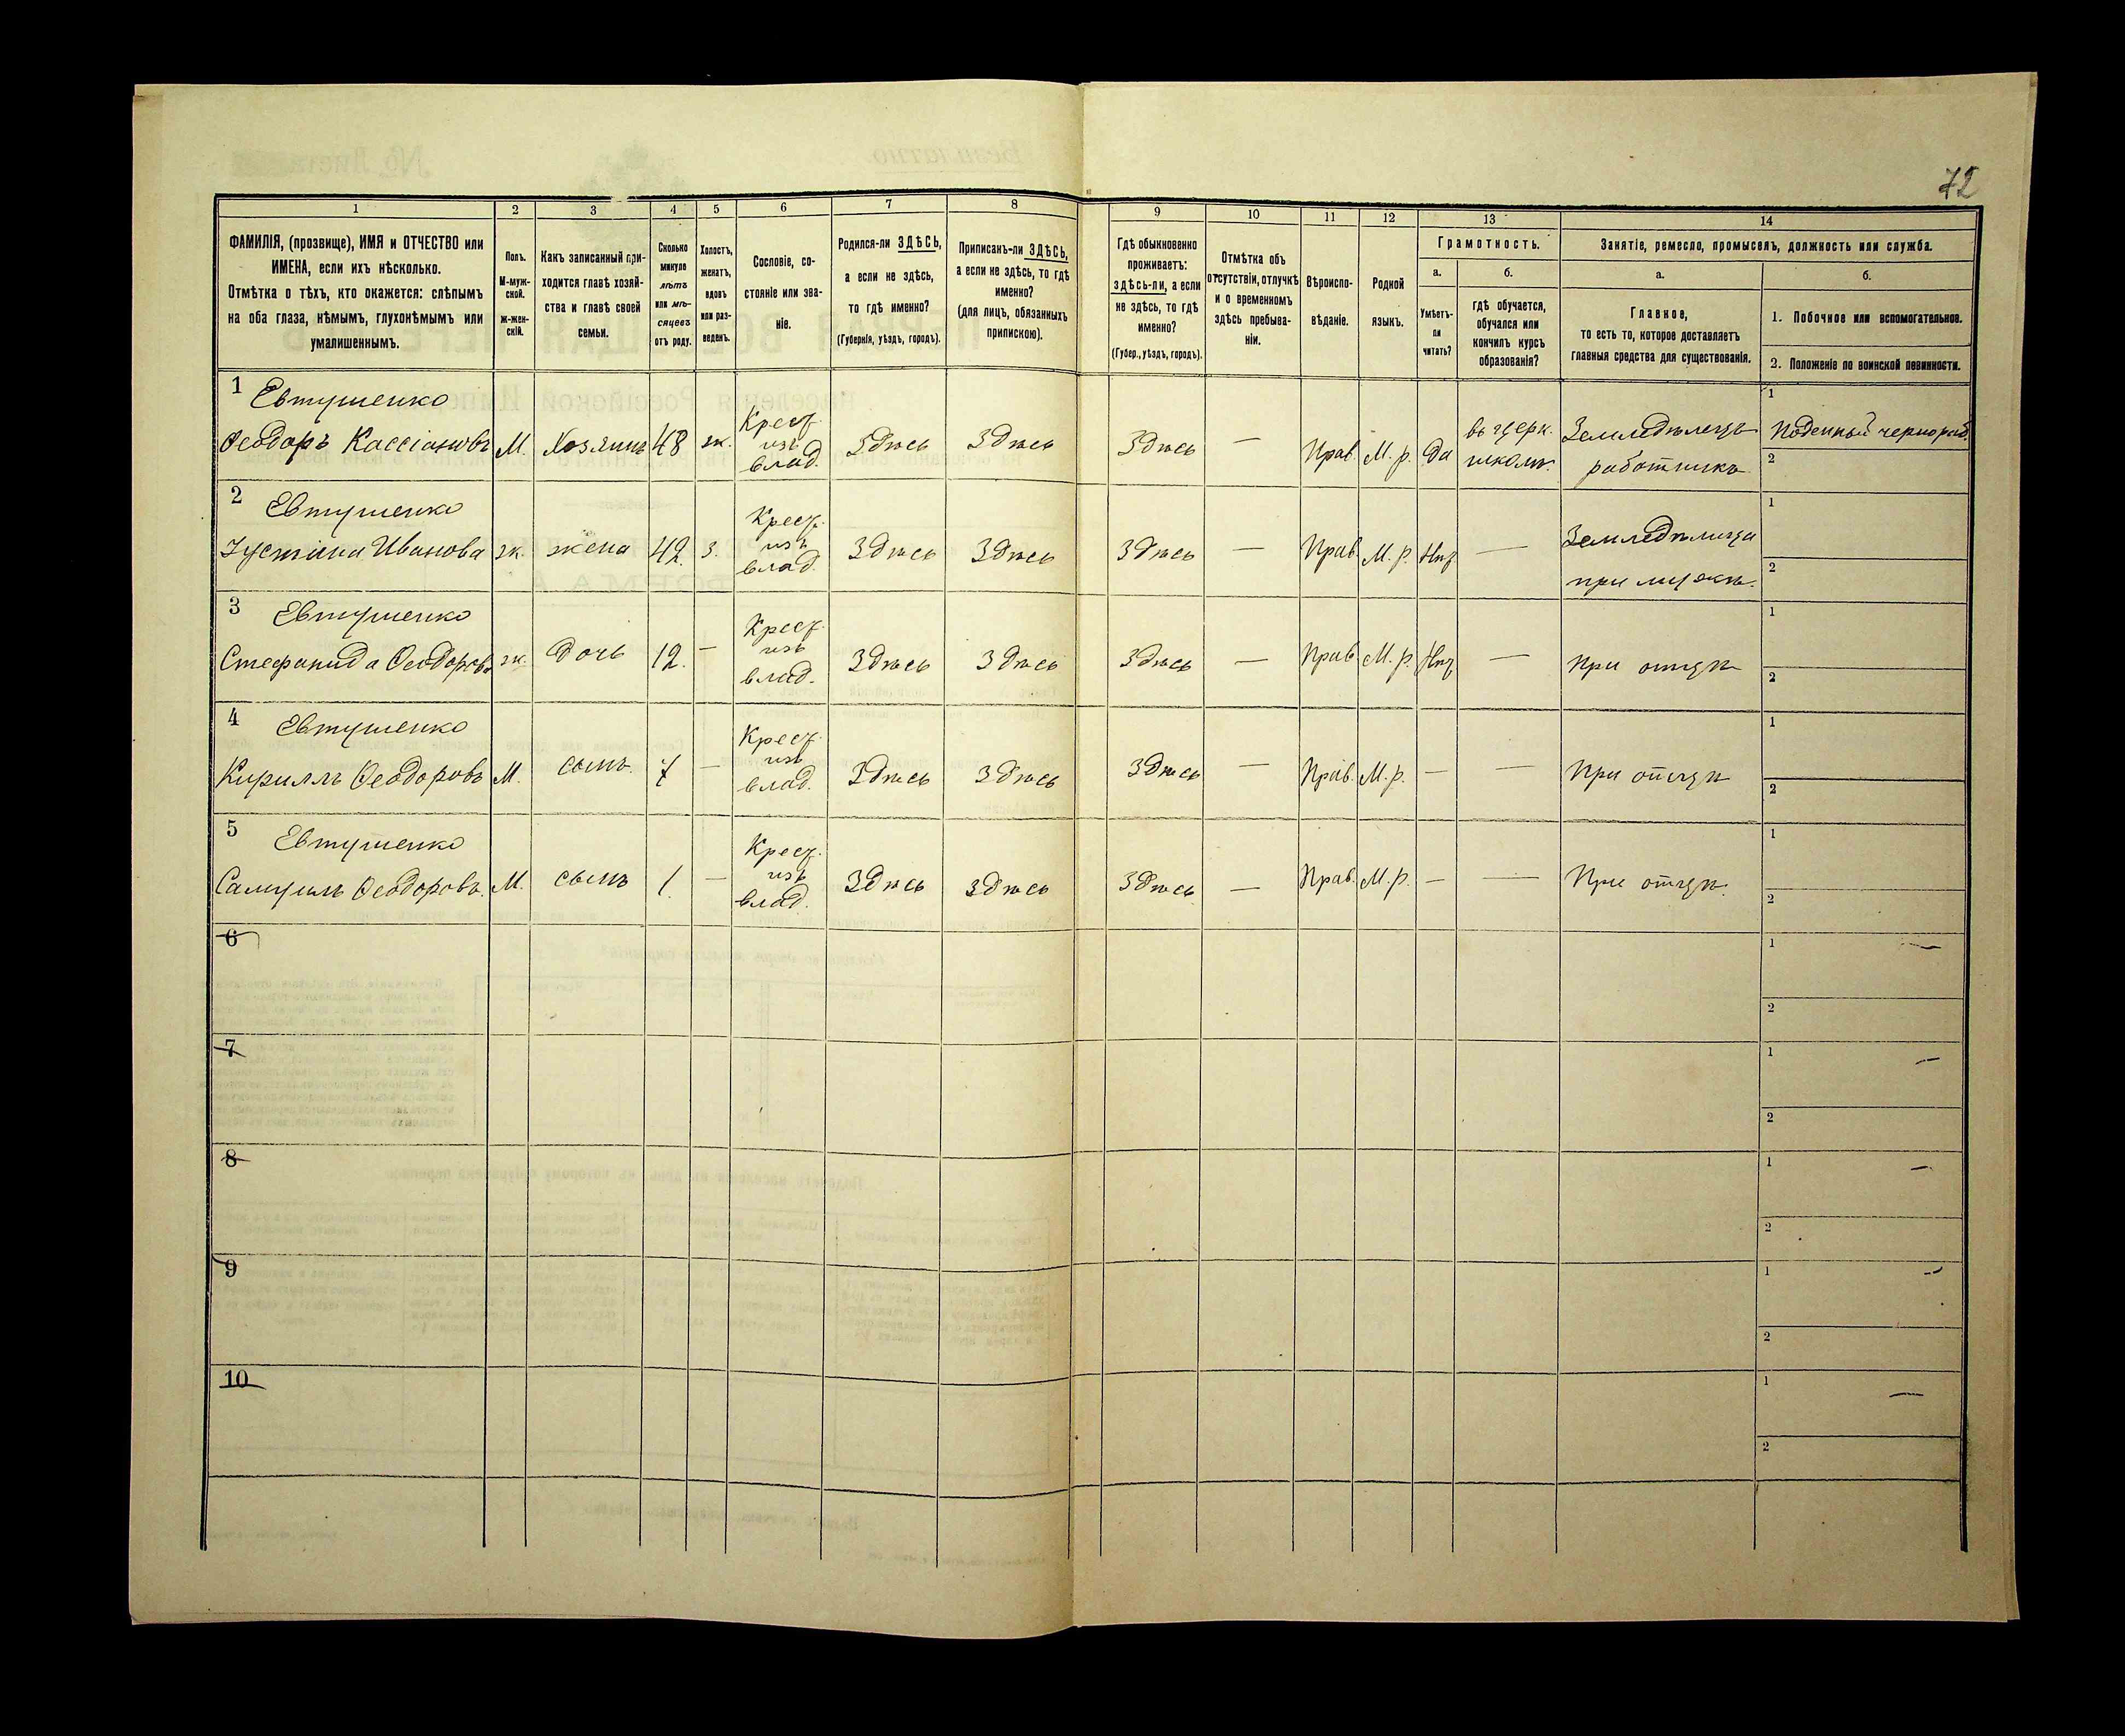 72
1 2 3 4 5 6 7 8 9 10 11 12 13 14
ФАМИЛІЯ, (прозвище), ИМЯ и ОТЧЕСТВО или
ИМЕНА, если ихъ нѣсколько.
Отмѣтка о тѣхъ, кто окажется: слѣпымъ
на оба глаза, нѣмымъ, глухонѣмымъ или
умалишеннымъ.
Полъ.
М-муж-
ской.
Ж-жен-
скій.
Какъ записанный при-
ходится главѣ хозяй-
ства и главѣ своей
семьи.
Сколько
минуло
лѣтъ
или мѣ-
сяцевъ
отъ роду.
Холостъ,
женатъ,
вдовъ
или раз-
веденъ.
Сословіе, со-
стояніе или зва-
ніе.
Родился-ли ЗДѢСЬ,
а если не здѣсь,
то гдѣ именно?
(Губернія, уѣздъ, городъ).
Приписанъ-ли ЗДѢСЬ,
а если не здѣсь, то гдѣ
именно?
(для лицъ, обязанныхъ
припискою).
Гдѣ обыкновенно
проживаетъ:
здѣсь-ли, а если
не здѣсь, то гдѣ
именно?
(Губер., уѣздъ, городъ).
Отмѣтка объ
отсутствіи, отлучкѣ
и о временномъ
здѣсь пребыва-
ніи.
Вѣроиспо-
вѣданіе.
Родной
языкъ.
Грамотность.
а.
Умѣетъ-
ли
читать?
б.
гдѣ обучается,
обучался или
кончилъ курсъ
образованія?
Занятіе, ремесло, промыселъ, должность или служба.
а.
Главное,
то есть то, которое доставляетъ
главныя средства для существованія.
б.
1. Побочное или вспомогательное.
2. Положеніе по воинской повинности.
1 Евтушенко
Ѳеодоръ Кассіановъ М. Хозяинъ 48 ж. Крест. изъ влад. Здѣсь Здѣсь Здѣсь — Прав. М. р. Да въ церк. школѣ. Земледѣлецъ работникъ 1 Поденный чернораб. 2
2 Евтушенко
Іустина Иванова ж. жена 42. з. Крест. изъ влад. Здѣсь Здѣсь Здѣсь — Прав. М. р. Нѣт — Земледѣлица при мужѣ. 1 2
3 Евтушенко
Стефанида Ѳеодоров. ж. дочь 12. — Крест. изъ влад. Здѣсь Здѣсь Здѣсь — Прав. М. р. Нѣт — При отцѣ 1 2
4 Евтушенко
Кириллъ Ѳеодоровъ М. сынъ. 7 — Крест. изъ влад. Здѣсь Здѣсь Здѣсь — Прав. М. р. — — При отцѣ 1 2
5 Евтушенко
Самуилъ Ѳеодоровъ. М. сынъ 1. — Крест. изъ влад. Здѣсь Здѣсь Здѣсь — Прав. М. р. — — При отцѣ. 1 2
6 1 — 2
7 1 — 2
8 1 — 2
9 1 — 2
10 1 — 2